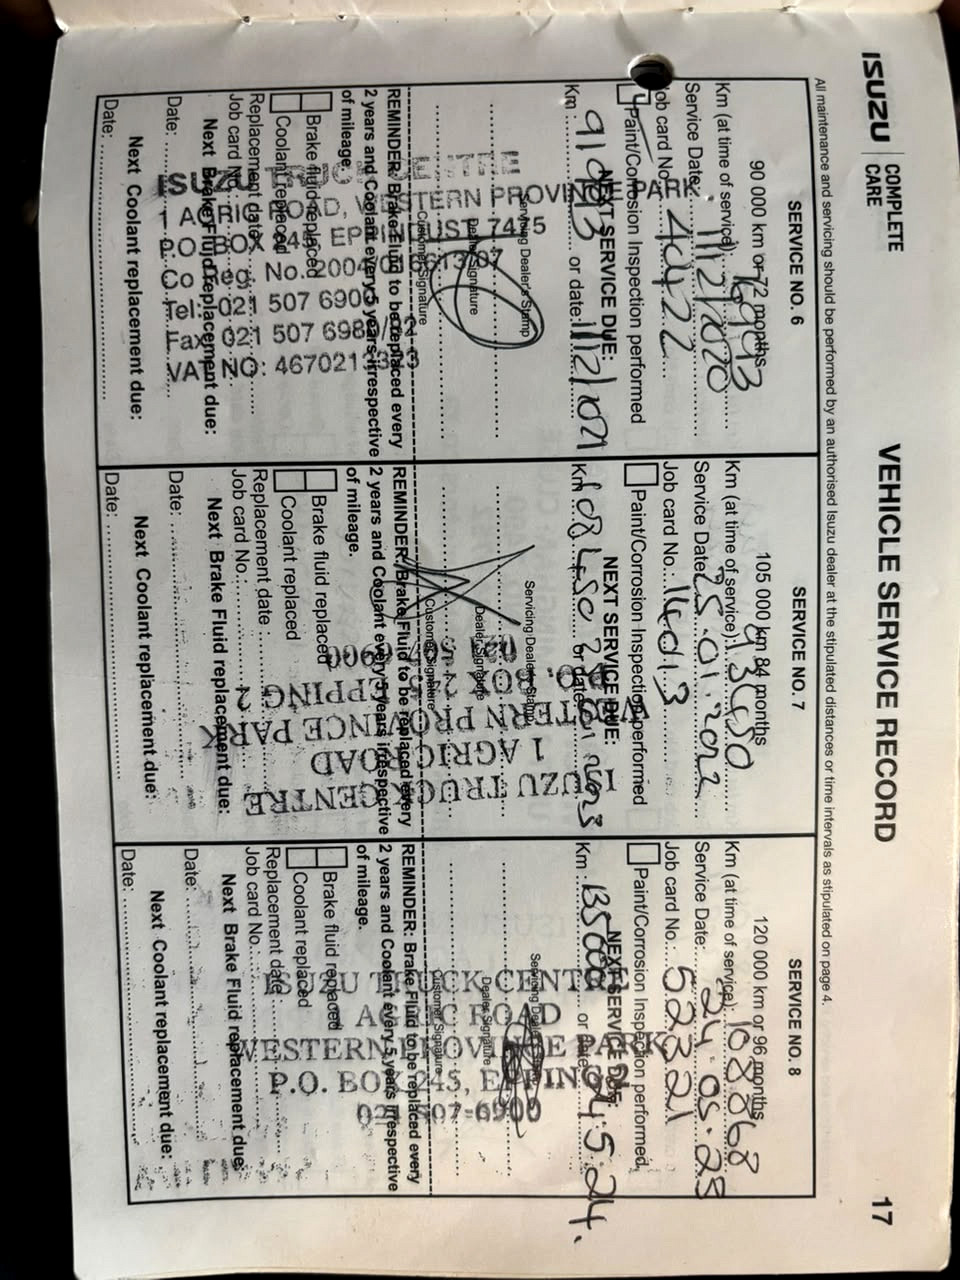 ISUZU
COMPLETE
CARE
VEHICLE SERVICE RECORD
17
All maintenance and servicing should be performed by an authorised Isuzu dealer at the stipulated distances or time intervals as stipulated on page 4.
SERVICE NO. 6
90 000 km or 72 months
Km (at time of service):
Service Date: 11/12/2020
Job card No. 40422
Paint/Corrosion Inspection performed
NEXT SERVICE DUE:
Km or date:
Servicing Dealer's Stamp
Dealer Signature
Customer Signature
REMINDER: Brake Fluid to be replaced every
2 years and Coolant every 5 years irrespective
of mileage.
Brake fluid replaced
Coolant replaced
Replacement date
Job card No.
Next Brake Fluid replacement due:
Date:
Next Coolant replacement due:
Date:
WESTERN PROVINCE PARK
7475
507 6900
SERVICE NO. 7
105 000 km 84 months
Km (at time of service): 93450
Service Date:
Job card No.
Paint/Corrosion Inspection performed
NEXT SERVICE DUE:
Km 108450 or date:
Servicing Dealer's Stamp
Dealer Signature
Customer Signature
REMINDER: Brake Fluid to be replaced every
2 years and Coolant every 5 years irrespective
of mileage.
Brake fluid replaced
Coolant replaced
Replacement date :
Job card No.:
Next Brake Fluid replacement due:
Date:
Next Coolant replacement due:
Date:
ISUZU TRUCK CENTRE
1 AGRIC ROAD
WESTERN PROVINCE PARK
EPPING 2
SERVICE NO. 8
120 000 km or 96 months
Km (at time of service): 108868
Service Date: 24.05.23
Job card No. 52321
Paint/Corrosion Inspection performed
NEXT SERVICE DUE:
Km : or date: 24.5.24.
Dealer Signature
Customer Signature
REMINDER: Brake Fluid to be replaced every
2 years and Coolant every 5 years irrespective
of mileage.
Brake fluid replaced
Coolant replaced
Replacement date
Job card No.:
Next Brake Fluid replacement due:
Date:
Next Coolant replacement due:
Date:
ISUZU TRUCK CENTRE
AGRIC ROAD
WESTERN PROVINCE PARK
P.O. BOX 245, EPPING 2
021 507-6900